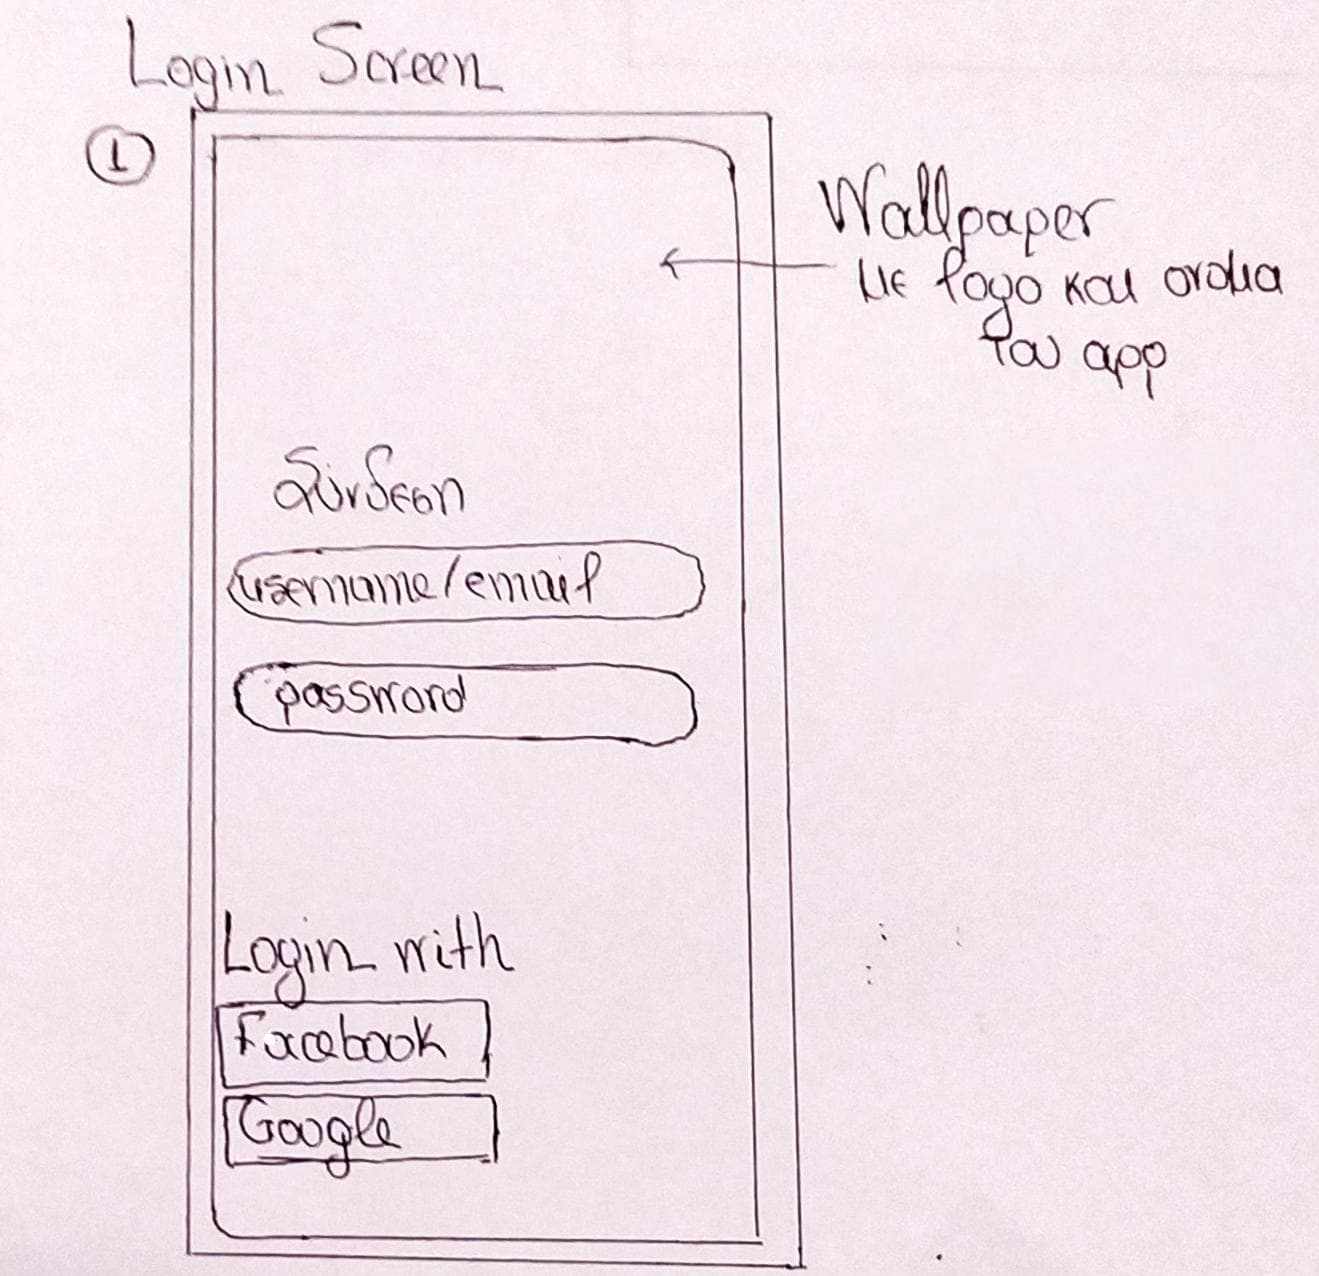 Login Screen
1
Wallpaper
με λογο και ονομα
του app
Σύνδεση
username/email
password
Login with
Facebook
Google